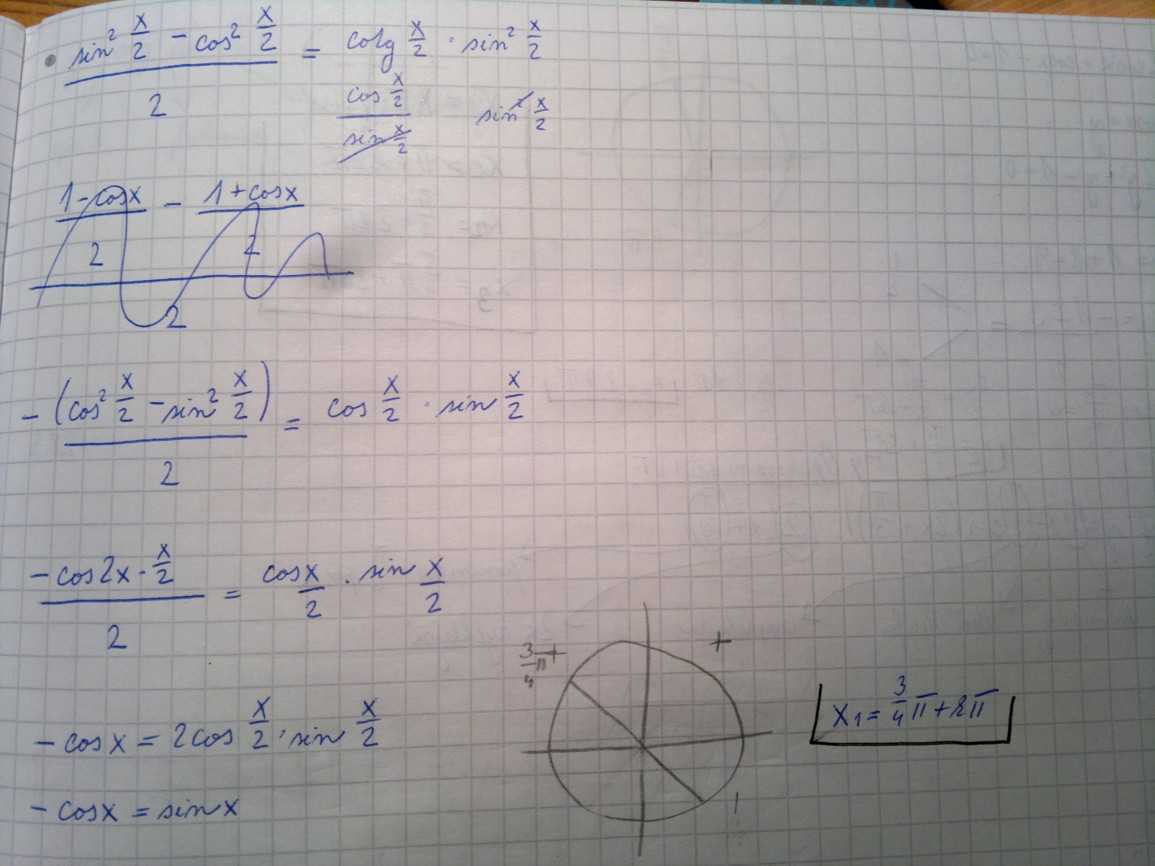 • (sin² x/2 − cos² x/2)/2 = cotg x/2 · sin² x/2
cos x/2 / sin x/2 sin² x/2
(1−cosx)/2 − (1+cosx)/2
2
−(cos² x/2 − sin² x/2)/2 = cos x/2 · sin x/2
−cos2x·x/2 / 2 = cos x/2 · sin x/2
3/4 π +
+
x₁ = 3/4 π + kπ
−cosx = 2cos x/2 · sin x/2
−cosx = sinx